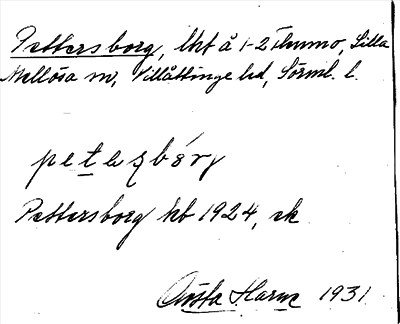 Pettersborg, lht å 1-2 Thumo, Lilla
Mellösa sn, Villåttinge hd, Sörml. l.
Pettersborg kb 1924, ek
Gösta Harne 1931